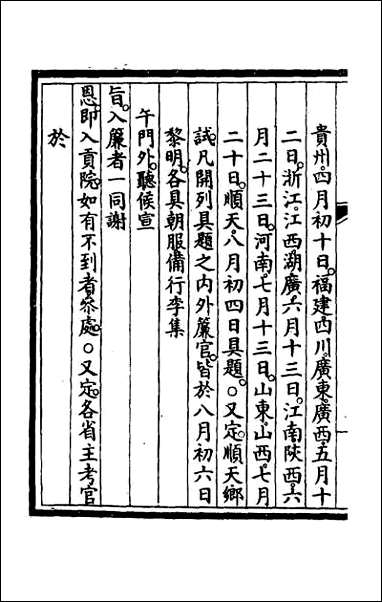 貴州。四月初十日。福建四川。廣東。廣西。五月十
二日。浙江。江西。湖廣。六月十三日。江南陝西。六
月二十三日。河南。七月十三日。山東。山西。七月
二十日。順天。八月初四日具題。○又定。順天鄉
試。凡開列具題之內外簾官。皆於八月初六日
黎明。各具朝服。備行李集
午門外。聽候宣
旨。入簾者一同謝
恩。即入貢院。如有不到者。叅處。○又定。各省主考官
於